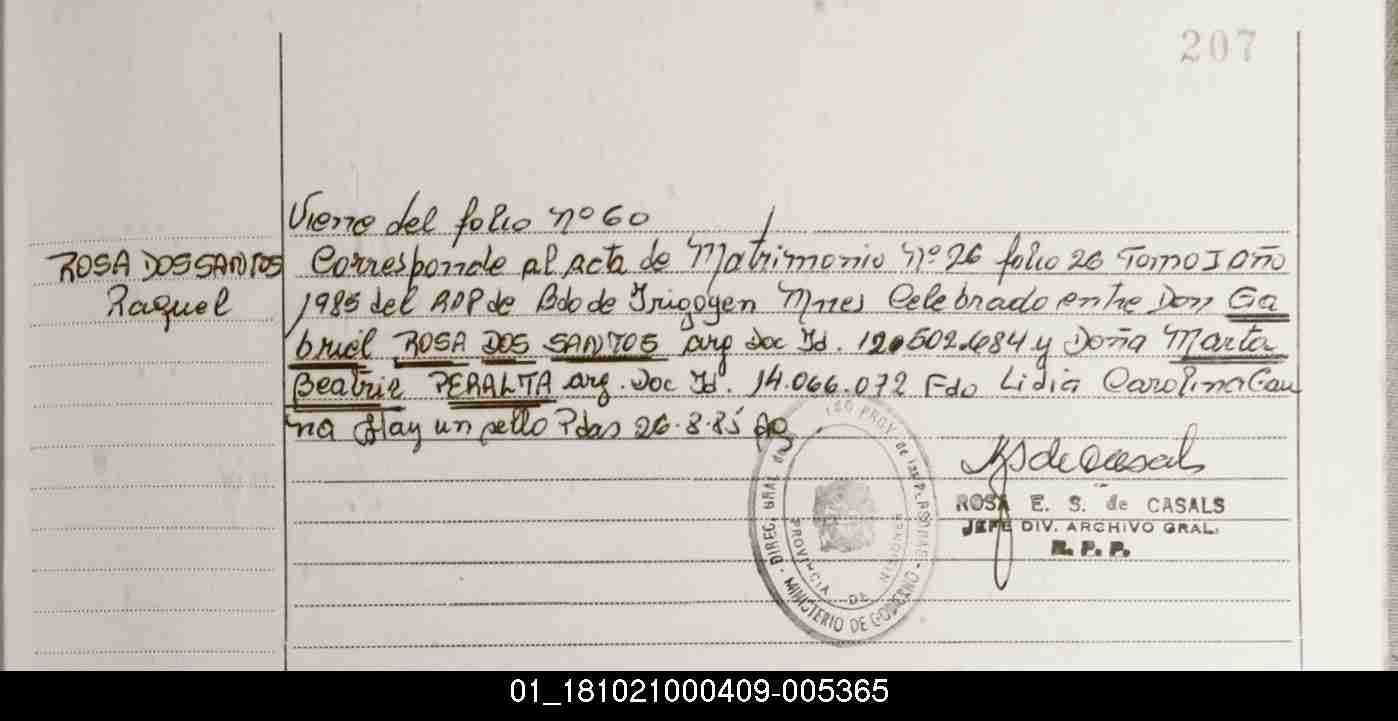 207
Viene del folio nº 60
ROSA DOS SANTOS
Raquel
Corresponde al acta de Matrimonio nº 26 folio 26 Tomo I año
1985 del RPP de Bdo de Irigoyen Mnes Celebrado entre Don Ga
briel ROSA DOS SANTOS arg Doc Id. 12.502.684 y Doña Marta
Beatriz PERALTA arg. Doc Id. 14.066.072 Fdo Lidia Carolina Gau
na Hay un sello Pdas 26.8.85
ROSA E. S. de CASALS
JEFE DIV. ARCHIVO GRAL.
R. P. P.
DIREC. GRAL de PROV. de las PERSONAS
MINISTERIO DE GOBIERNO
PROVINCIA DE MISIONES
01_181021000409-005365